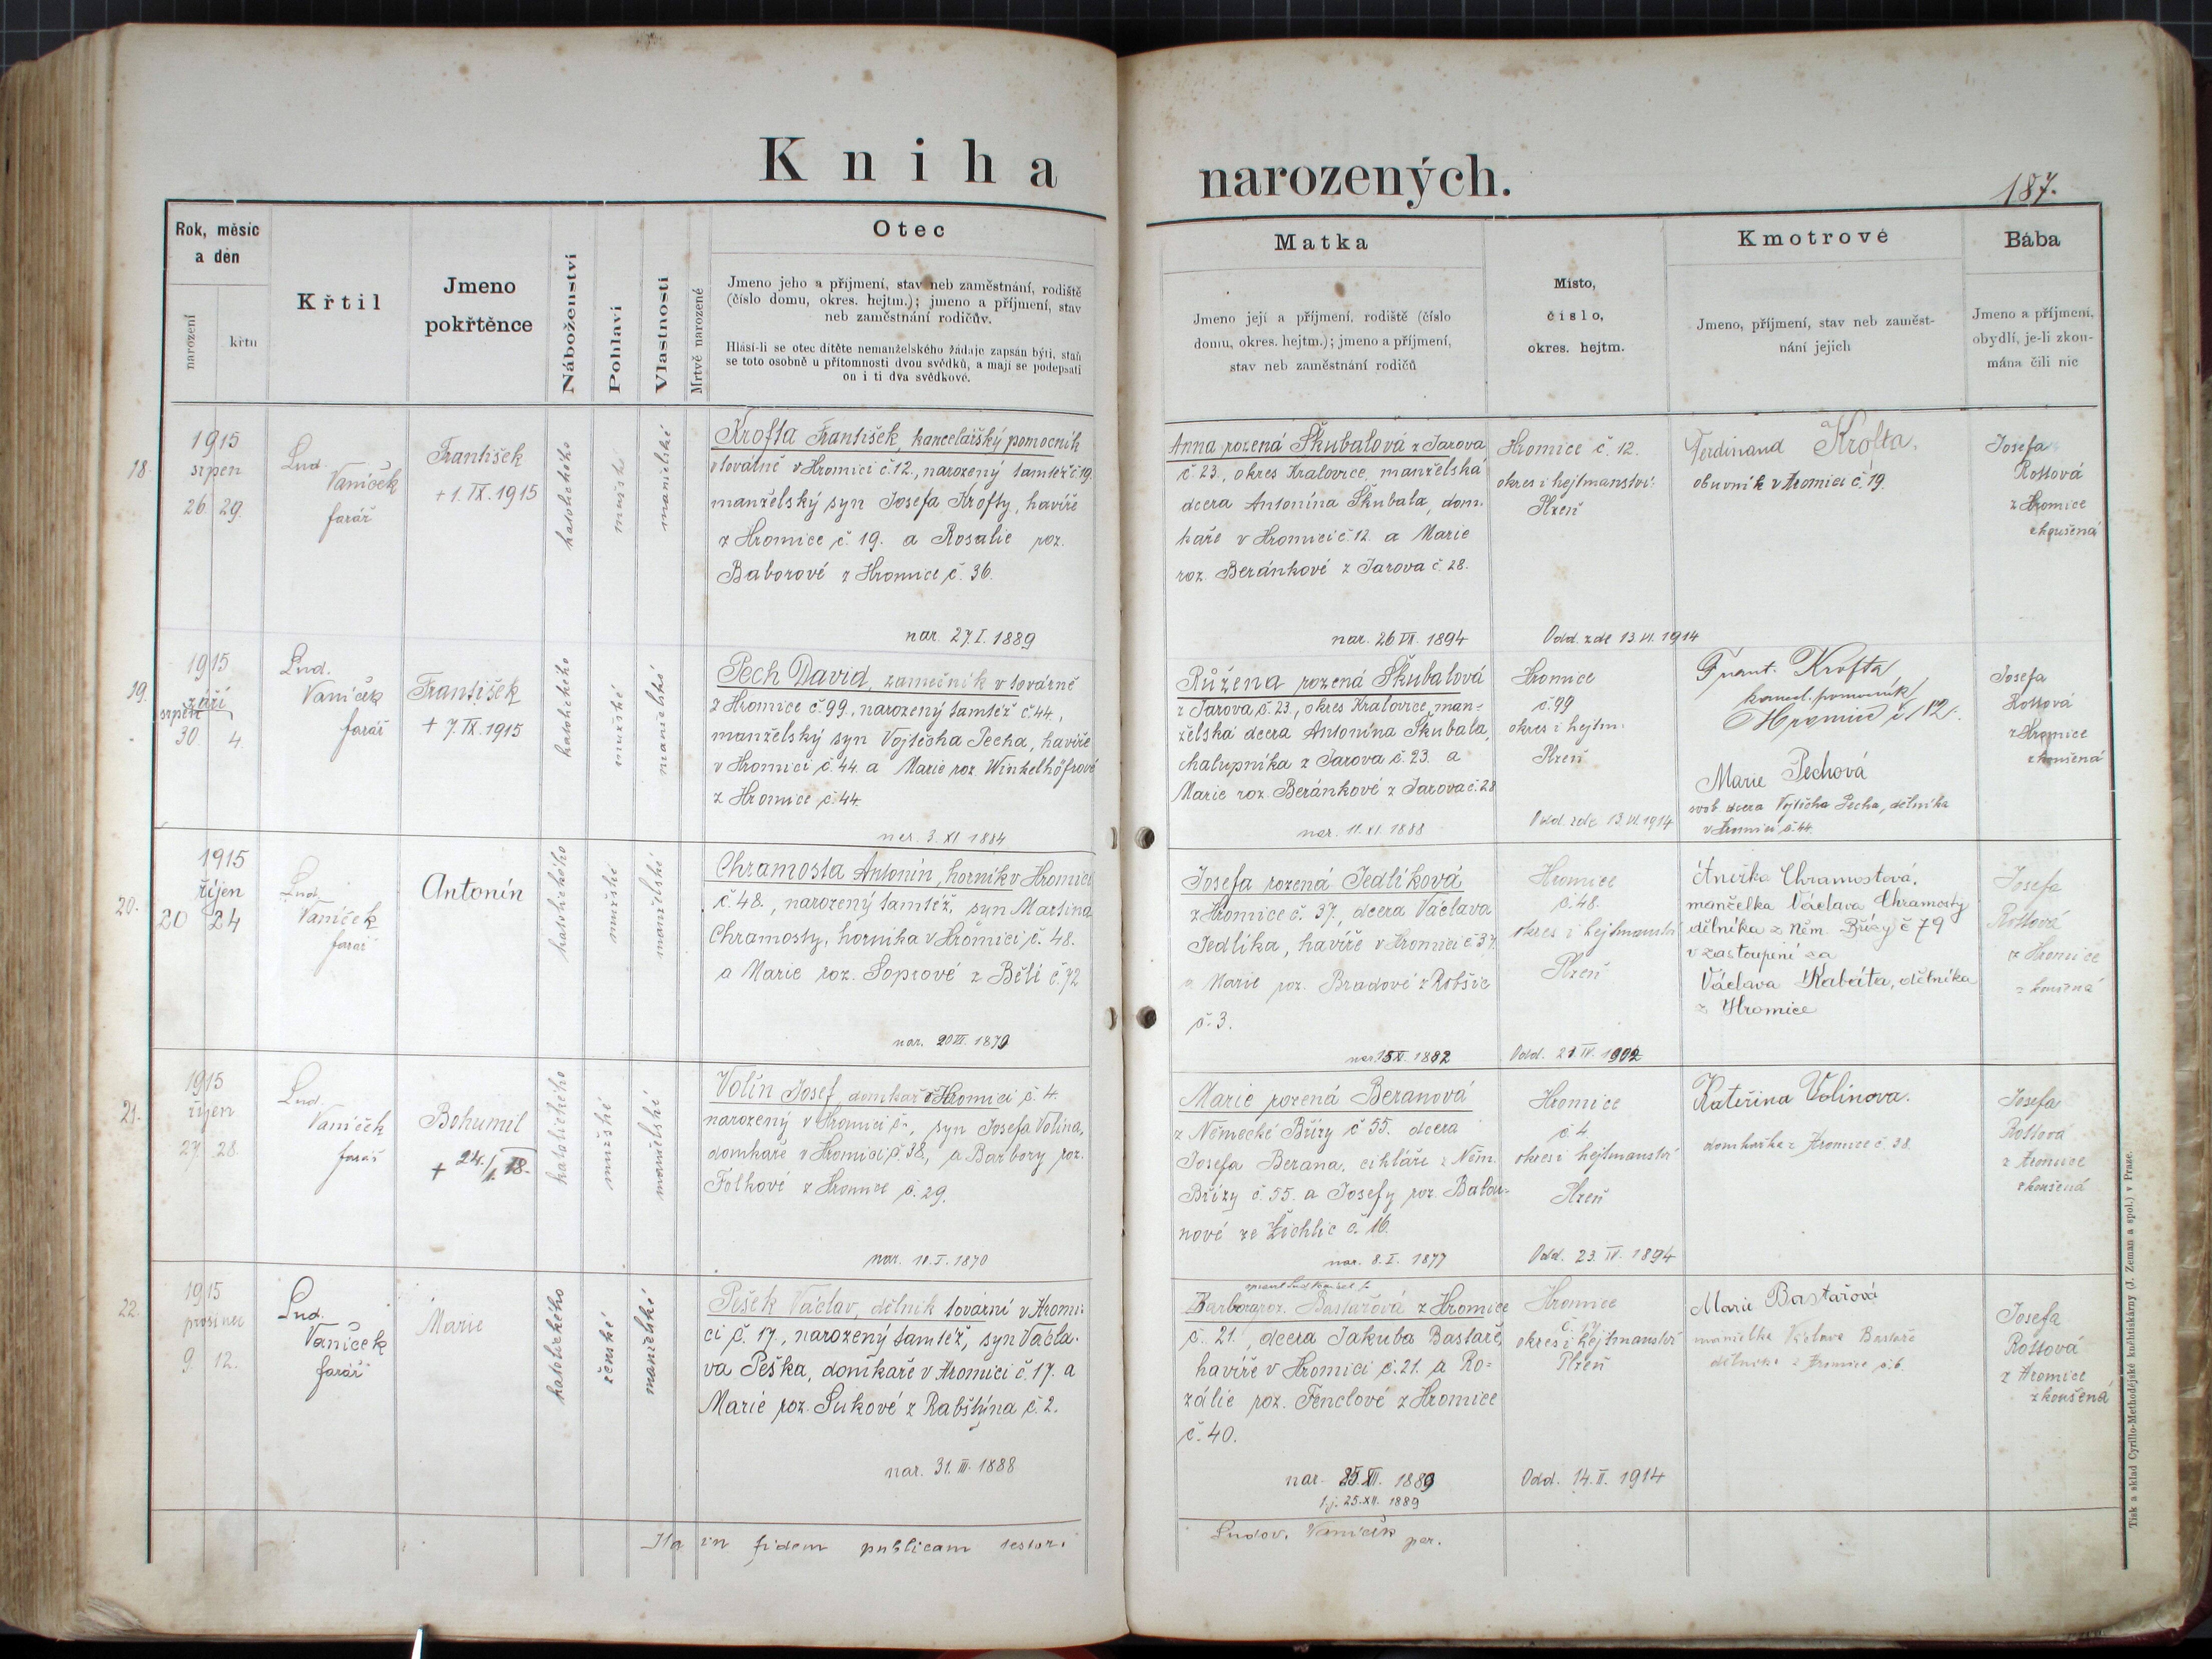 Kniha narozených.
187.
Rok, měsíc
a den
narození
křtu
Křtil
Jmeno
pokřtěnce
Náboženství
Pohlaví
Vlastnosti
Mrtvě narozené
Otec
Jmeno jeho a příjmení, stav neb zaměstnání, rodiště
(číslo domu, okres. hejtm.); jmeno a příjmení, stav
neb zaměstnání rodičův.
Hlásí-li se otec dítěte nemanželského žádaje zapsán býti, staň
se toto osobně u přítomnosti dvou svědků, a mají se podepsati
on i ti dva svědkové.
Matka
Jmeno její a příjmení, rodiště (číslo
domu, okres. hejtm.); jmeno a příjmení,
stav neb zaměstnání rodičů
Místo,
číslo,
okres. hejtm.
Kmotrové
Jmeno, příjmení, stav neb zaměst-
nání jejich
Bába
Jmeno a příjmení,
obydlí, je-li zkou-
mána čili nic
18.
1915
srpen
26. 29.
Lud.
Vaníček
farář
František
+ 1. IX. 1915
katolického
mužské
manželské
Krofta František, kancelářský pomocník
v továrně v Hromici č. 12., narozený tamtéž č. 19.
manželský syn Josefa Krofty, havíře
z Hromice č. 19. a Rosalie roz.
Baborové z Hromice č. 36.
nar. 27. I. 1889
Anna rozená Škubalová z Jarova
č. 23., okres Kralovice, manželská
dcera Antonína Škubala, dom-
kaře v Hromici č. 12. a Marie
roz. Beránkové z Jarova č. 28.
nar. 26. VII. 1894
Hromice č. 12.
okres i hejtmanství:
Plzeň
Odd. zde 13. VI. 1914
Ferdinand Krofta.
obuvník v Hromici č. 19.
Josefa
Rottová
z Hromice
zkoušená
19.
1915
září
srpen
30. 4.
Lud.
Vaníček
farář
František
+ 7. IX. 1915
katolického
mužské
manželské
Pech David, zámečník v továrně
z Hromice č. 99., narozený tamtéž č. 44.,
manželský syn Vojtěcha Pecha, havíře
v Hromici č. 44. a Marie roz. Winkelhöfrové
z Hromice č. 44.
nar. 3. XI. 1884
Růžena rozená Škubalová
z Jarova č. 23., okres Kralovice, man-
želská dcera Antonína Škubala,
chalupníka z Jarova č. 23. a
Marie roz. Beránkové z Jarova č. 28
nar. 11. VI. 1888
Hromice
č. 99
okres i hejtm.
Plzeň
Odd. zde 13. VI. 1914
Frant. Krofta
kancel. pomocník
Hromice č. 12.
Marie Pechová
svob. dcera Vojtěcha Pecha, dělníka
v Hromici č. 44.
Josefa
Rottová
z Hromice
zkoušená
20.
1915
říjen
20 24
Lud.
Vaníček
farář
Antonín
katolického
mužské
manželské
Chramosta Antonín, horník v Hromici
č. 48., narozený tamtéž, syn Martina
Chramosty, horníka v Hromici č. 48.
a Marie roz. Soprové z Bělé č. 72
Josefa rozená Jedlíková
z Hromice č. 37, dcera Václava
Jedlíka, havíře v Hromici č. 37.
a Marie roz. Bradové z Robšic
č. 3.
Hromice
č. 48.
okres i hejtmanství
Plzeň
Odd. 21. IV. 1902
Anežka Chramostová,
manželka Václava Chramosty
dělníka z Něm. Břízy č 79
v zastoupení za
Václava Kabáta, dělníka
z Hromice
Josefa
Rottová
z Hromice
zkoušená
21.
1915
říjen
27. 28.
Lud.
Vaníček
farář
Bohumil
+ 24./I. 18.
katolického
mužské
manželské
Volín Josef, domkař v Hromici č. 4.
narozený v Hromici č., syn Josefa Volína,
domkaře v Hromici č. 38., a Barbory roz.
z Hromice č. 29.
nar. 10. I. 1870
Marie rozená Beranová
z Německé Břízy č 55. dcera
Josefa Berana, cihláře z Něm.
Břízy č. 55. a Josefy roz. Batou-
nové ze Žichlic č. 16.
nar. 8. I. 1877
Hromice
č. 4
okres i hejtmanství
Plzeň
Odd. 23. IV. 1894
Kateřina Volínova.
domkařka z Hromice č. 38.
Josefa
Rottová
z Hromice
zkoušená
22.
1915
prosinec
9. 12.
Lud.
Vaníček
farář
Marie
katolického
ženské
manželské
Pešek Václav, dělník tovární v Hromi-
ci č. 17., narozený tamtéž, syn Václa-
va Peška, domkaře v Hromici č. 17. a
Marie roz. Sukové z Rabštýna č. 2.
nar. 31. III. 1888
Barbora roz. Bastařová z Hromice
č. 21., dcera Jakuba Bastaře,
havíře v Hromici č. 21. a Ro-
zálie roz. Fenclové z Hromice
č. 40.
nar. 25. XII. 1889
t.j. 25. XII. 1889
Hromice
č. 17
okres i hejtmanství
Plzeň
Odd. 14. II. 1914
Marie Bastařová
manželka Václava Bastaře
dělníka z Hromice č. 6.
Josefa
Rottová
z Hromice
zkoušená
Ita in fidem publicam testor.
Ludov. Vaníček
par.
Tisk a sklad Cyrillo-Methodějské knihtiskárny (J. Zeman a spol.) v Praze.